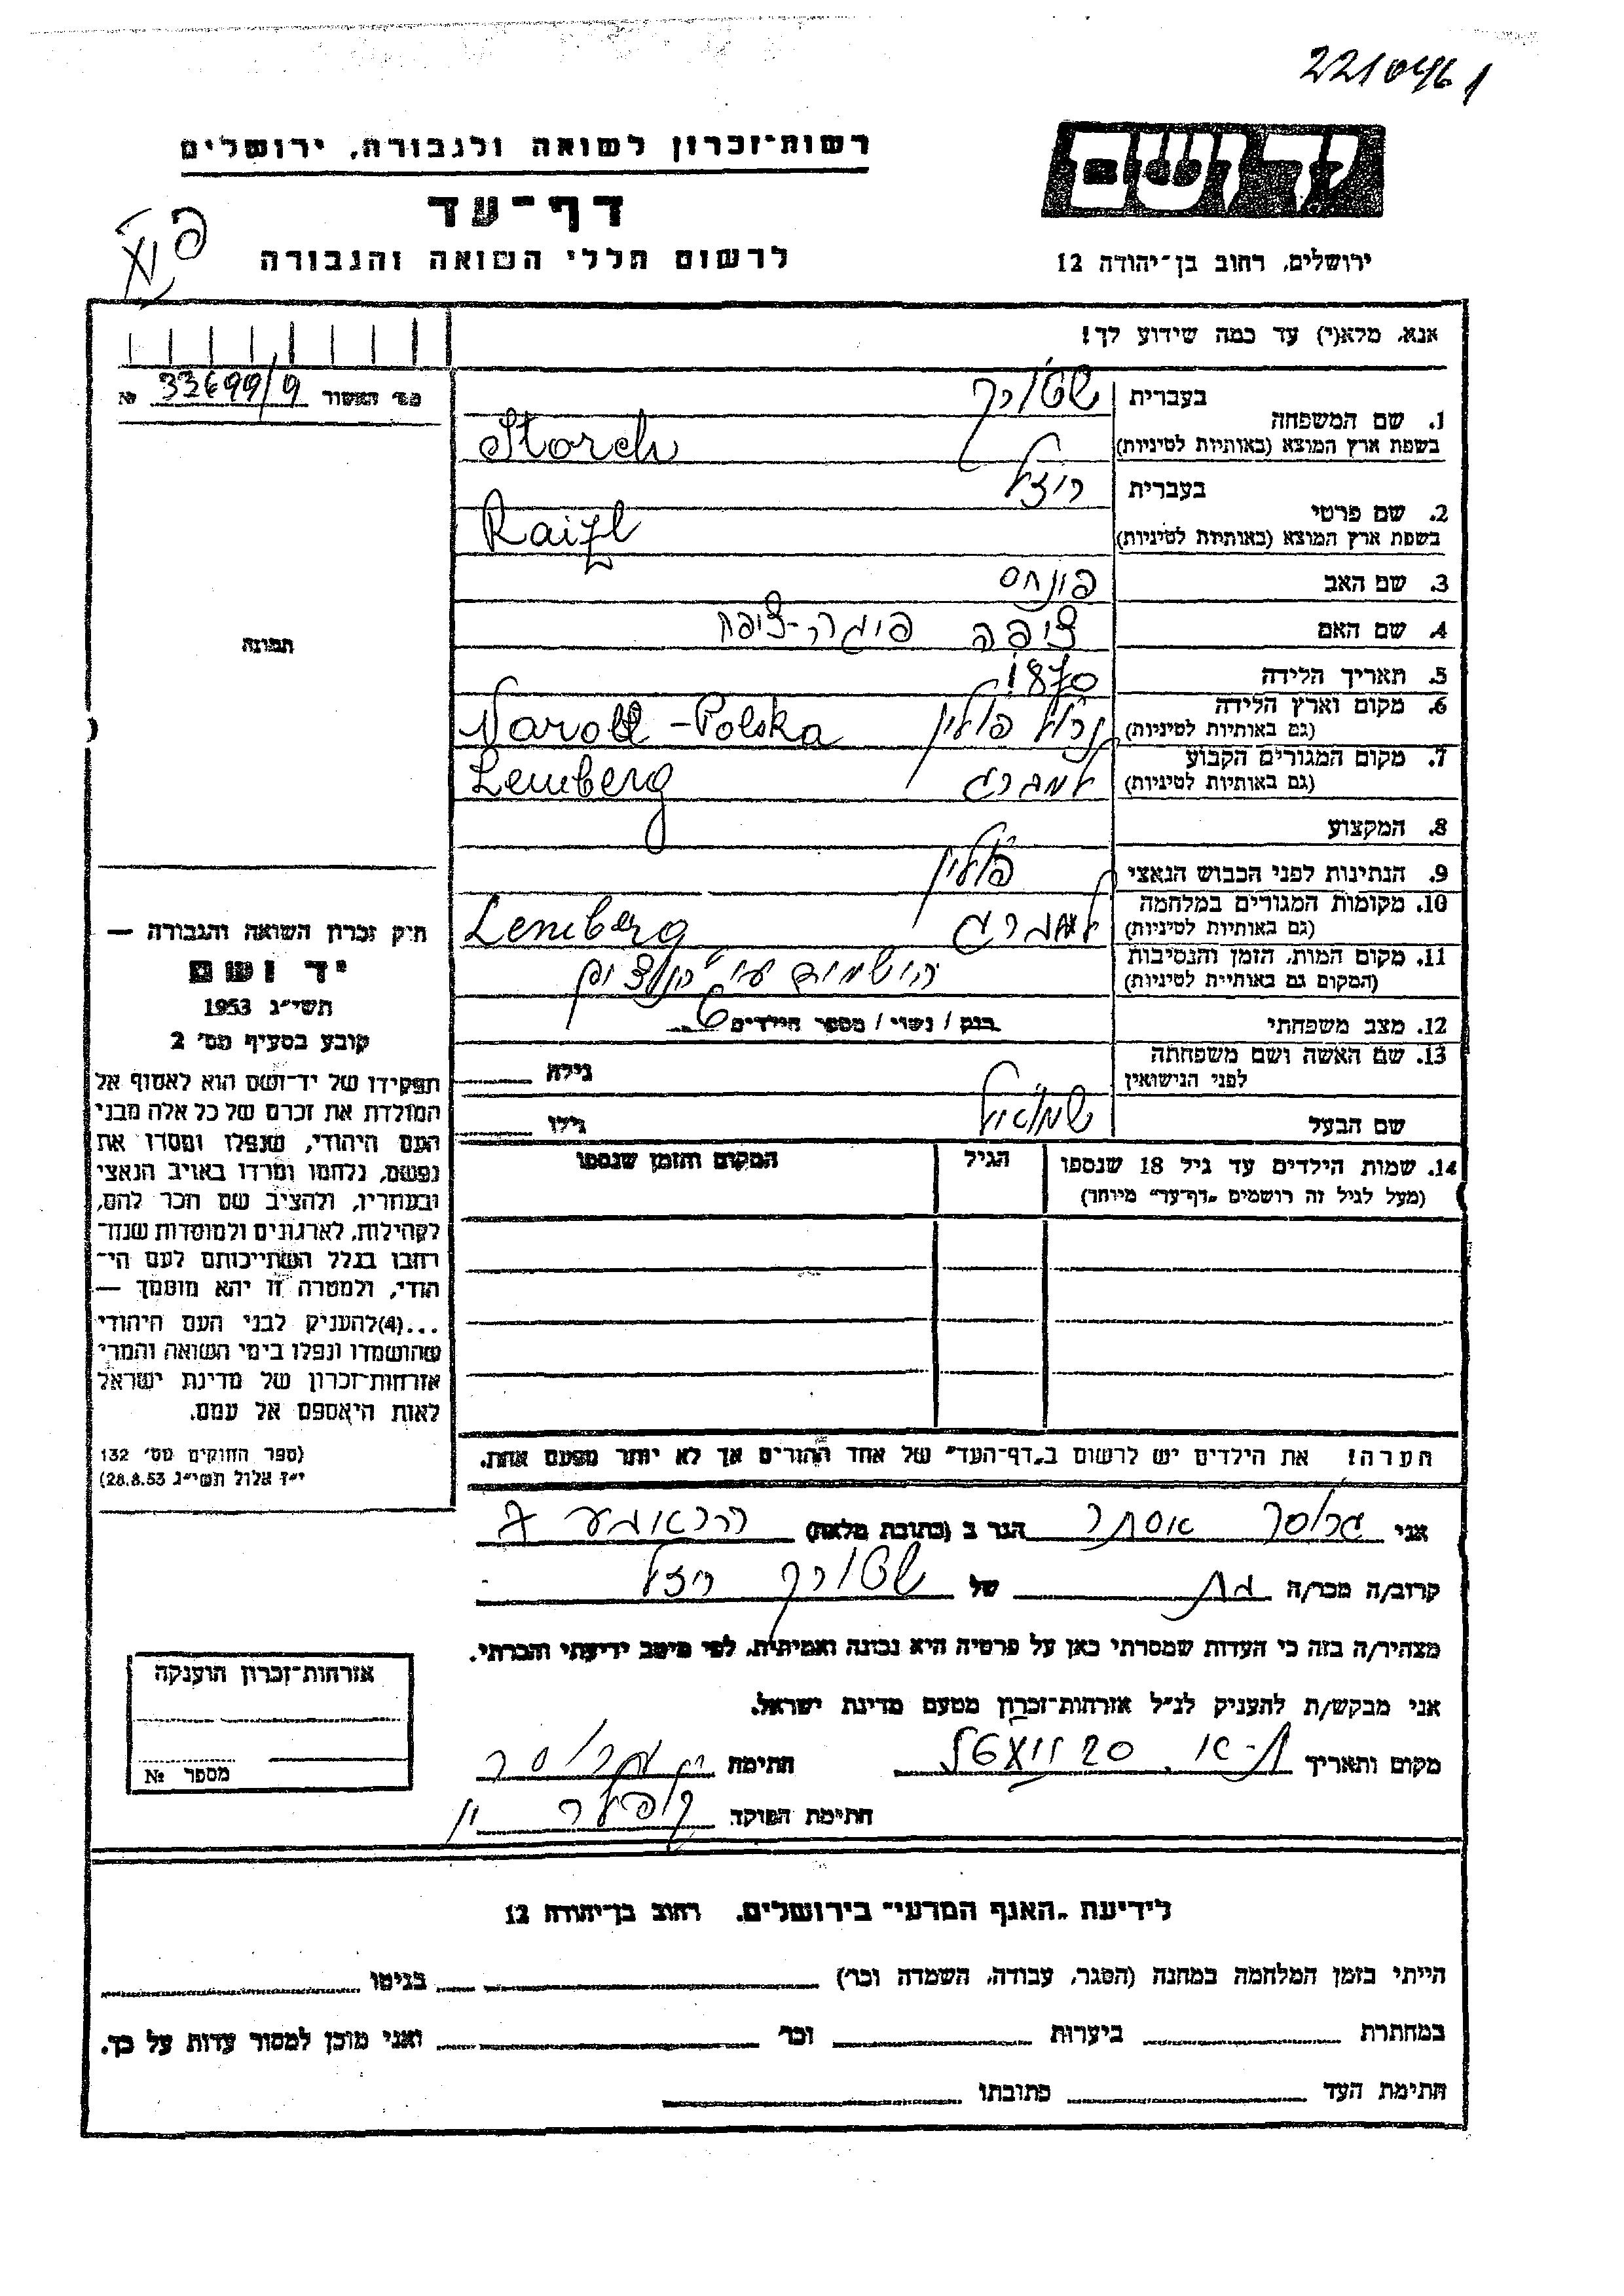 221046/
רשות־זכרון לשואה ולגבורה, ירושלים
יד ושם
דף־עד
לרשום חללי השואה והגבורה
ירושלים, רחוב בן־יהודה 12
אנא, מלא(י) עד כמה שידוע לך!
מס' האשור 33699/9 №
1. שם המשפחה
בעברית שטורך
בשפת ארץ המוצא (באותיות לטיניות) Storch
2. שם פרטי
בעברית ריזל
בשפת ארץ המוצא (באותיות לטיניות) Raizl
3. שם האב פינחס
4. שם האם ציפה פיגה-ציפה
5. תאריך הלידה 1870
6. מקום וארץ הלידה
(גם באותיות לטיניות) נרול פולין Naroll - Polska
7. מקום המגורים הקבוע
(גם באותיות לטיניות) למברג Lemberg
8. המקצוע
9. הנתינות לפני הכבוש הנאצי פולין
10. מקומות המגורים במלחמה
(גם באותיות לטיניות) למברג Lemberg
11. מקום המות, הזמן והנסיבות
(המקום גם באותיות לטיניות) הושמדה ע"י
12. מצב משפחתי רווק / נשוי / מספר הילדים 6
13. שם האשה ושם משפחתה
לפני הנישואין
גילה
שם הבעל שמואל
גילו
14. שמות הילדים עד גיל 18 שנספו
(מעל לגיל זה רושמים „דף־עד” מיוחד)
הגיל
המקום והזמן שנספו
הערה! את הילדים יש לרשום ב„דף־העד” של אחד ההורים אך לא יותר מפעם אחת.
תמונה
חוק זכרון השואה והגבורה —
יד ושם
תשי״ג 1953
קובע בסעיף מס' 2
תפקידו של יד־ושם הוא לאסוף אל
המולדת את זכרם של כל אלה מבני
העם היהודי, שנפלו ומסרו את
נפשם, נלחמו ומרדו באויב הנאצי
ובעוזריו, ולהציב שם וזכר להם,
לקהילות, לארגונים ולמוסדות שנח־
רבו בגלל השתייכותם לעם הי־
הודי, ולמטרה זו יהא מוסמך —
...(4)להעניק לבני העם היהודי
שהושמדו ונפלו בימי השואה והמרי
אזרחות־זכרון של מדינת ישראל
לאות היאספם אל עמם.
(ספר החוקים מס' 132
י״ז אלול תשי״ג 28.8.53)
אני אסתר הגר ב (כתובת מלאה)
קרוב/ה מכר/ה בת של שטורך ריזל
מצהיר/ה בזה כי העדות שמסרתי כאן על פרטיה היא נכונה ואמיתית, לפי מיטב ידיעתי והכרתי.
אני מבקש/ת להעניק לנ״ל אזרחות־זכרון מטעם מדינת ישראל.
מקום ותאריך ת-א. חתימה
חתימת הפוקד
אזרחות־זכרון הוענקה
מספר №
לידיעת „האגף המדעי” בירושלים. רחוב בן־יהודה 12
הייתי בזמן המלחמה במחנה (הסגר, עבודה, השמדה וכו') בגיטו
במחתרת ביערות וכו' ואני מוכן למסור עדות על כך.
חתימת העד כתובתו